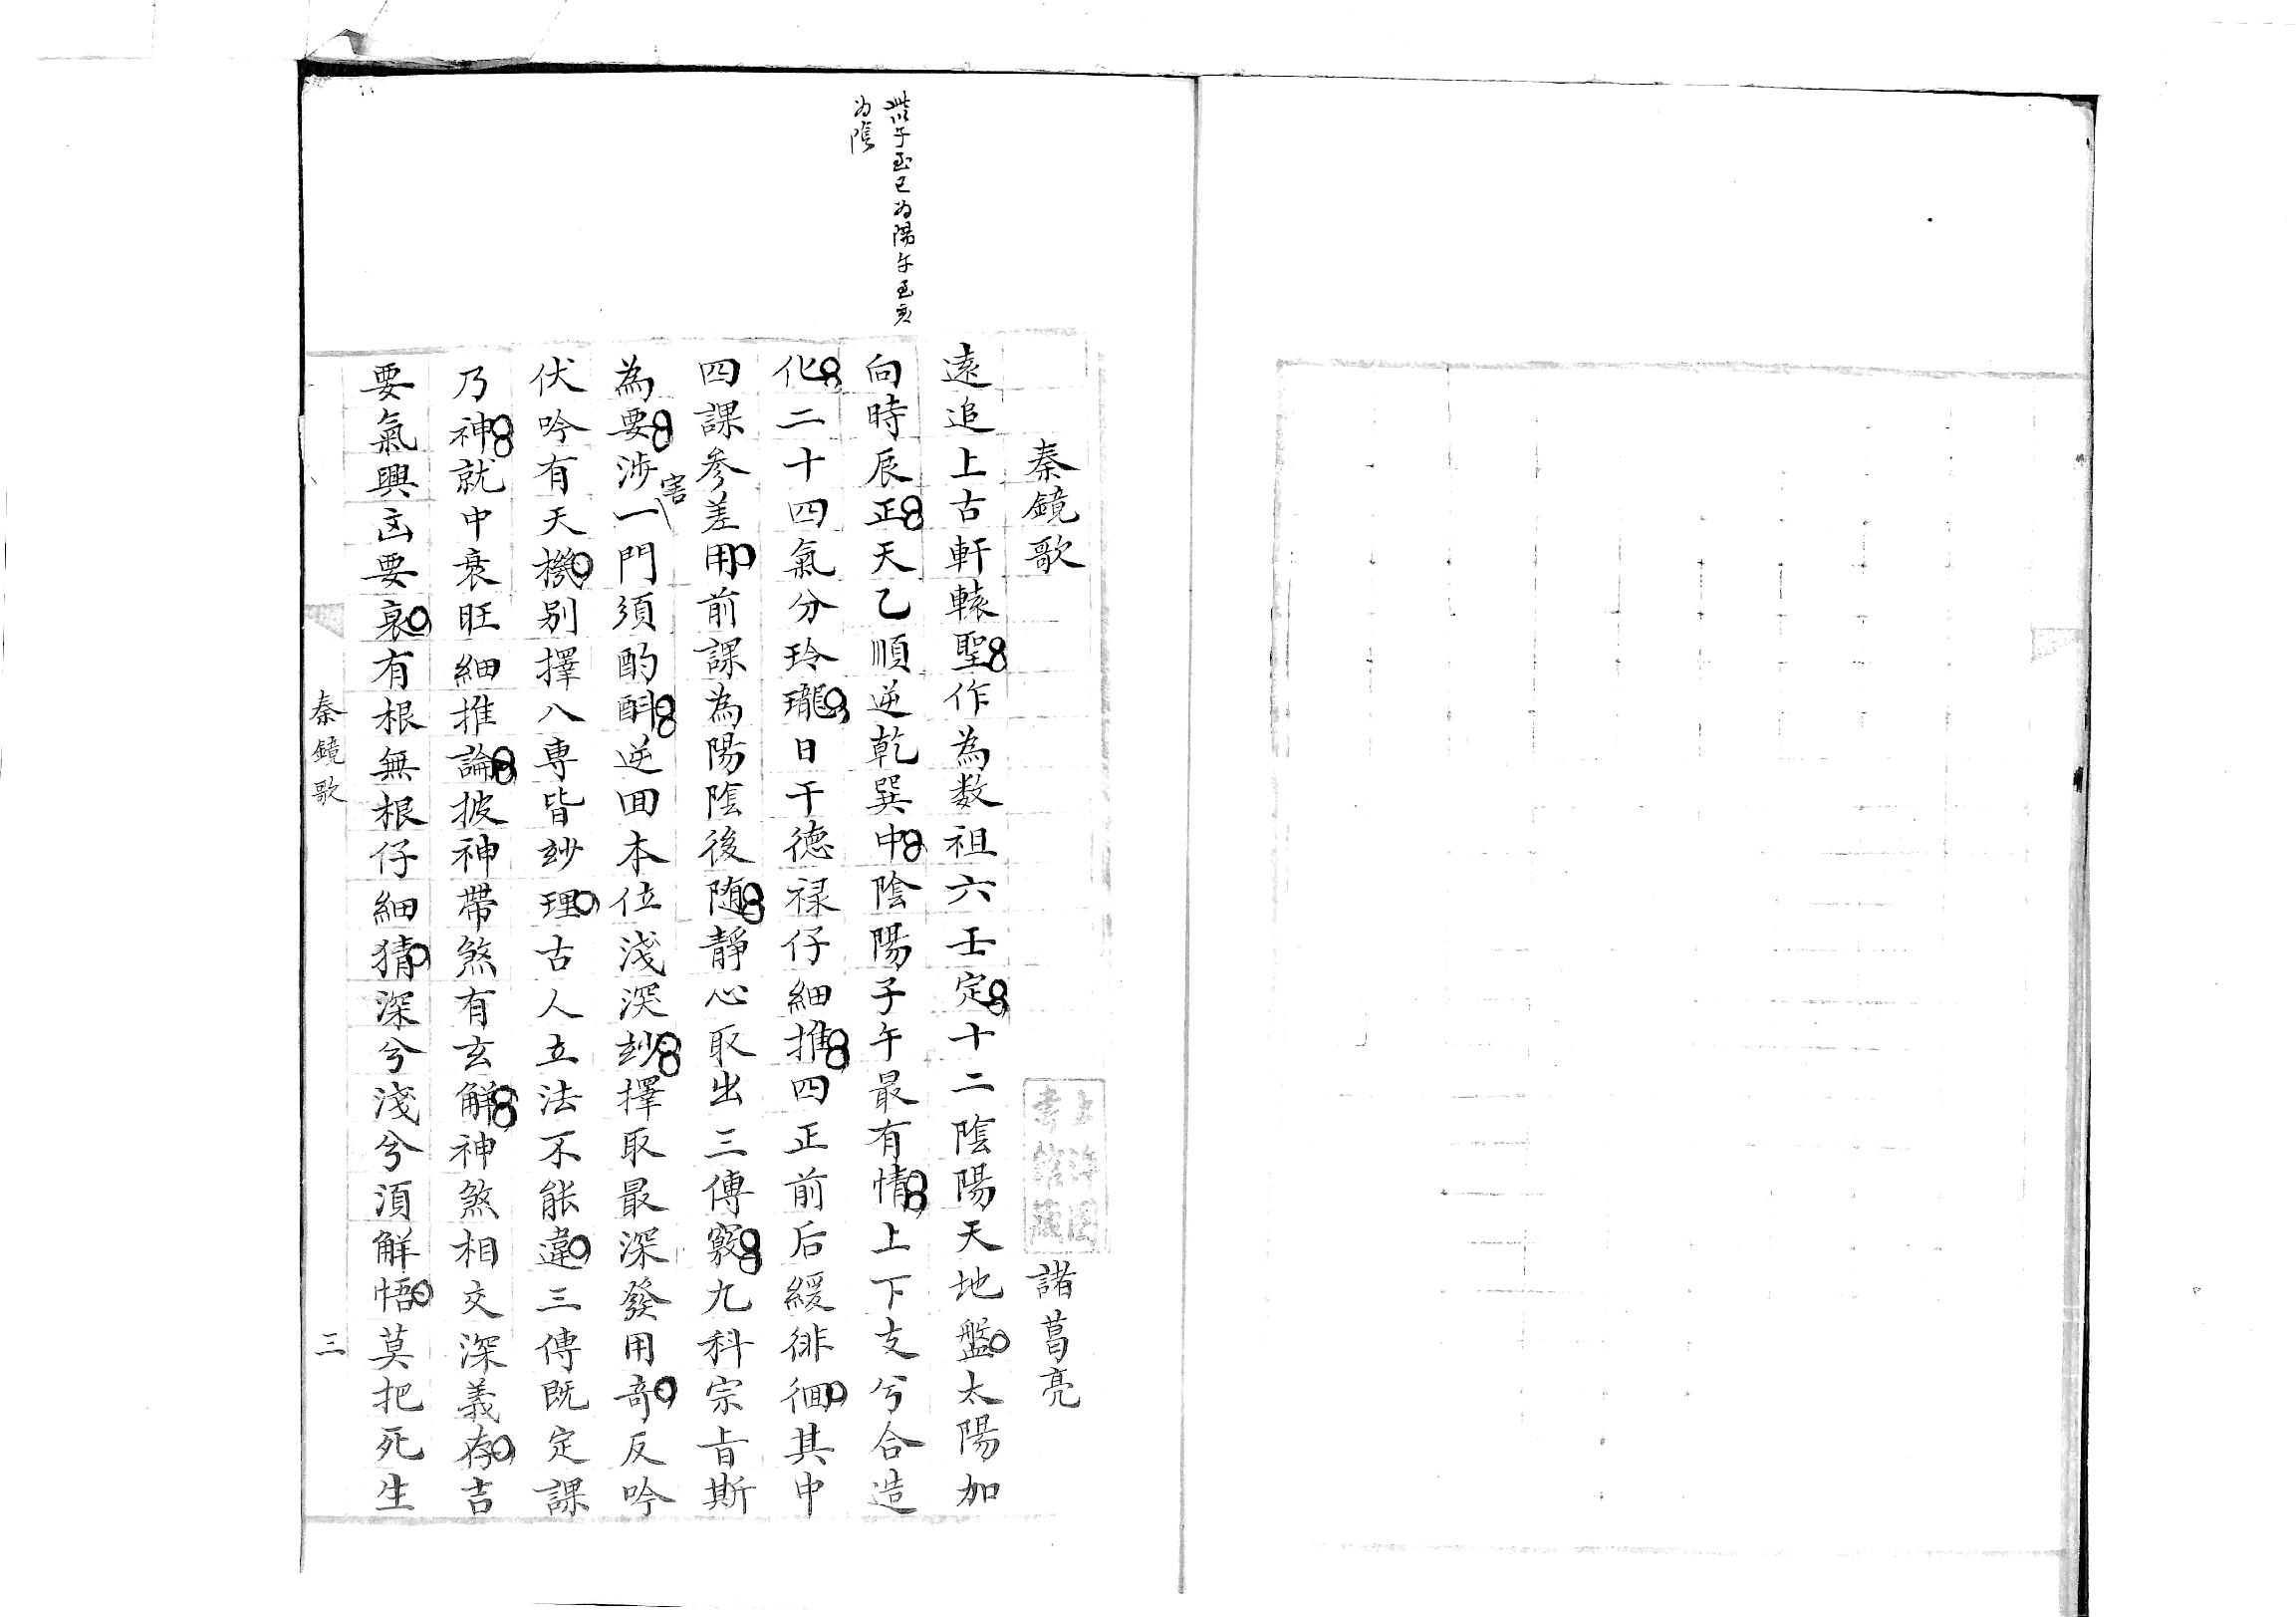 秦鏡歌
諸葛亮
上海圖
書館藏
遠追上古軒轅聖作為数祖六壬定十二陰陽天地盤太陽加
向時辰正天乙順逆乾巽中陰陽子午最有情上下支兮合造
化二十四氣分玲瓏日干德禄仔細推四正前后緩徘徊其中
四課参差用前課為陽陰後随靜心取出三傳竅九科宗旨斯
為要涉害一門須酌酙逆回本位淺深玅擇取最深發用奇反吟
伏吟有天機別擇八專皆玅理古人立法不能違三傳既定課
乃神就中衰旺細推論披神帶煞有玄解神煞相交深義存吉
要氣興凶要衰有根無根仔細猜深兮淺兮須解悟莫把死生
至巳為陽午至亥
为陰
秦鏡歌
三